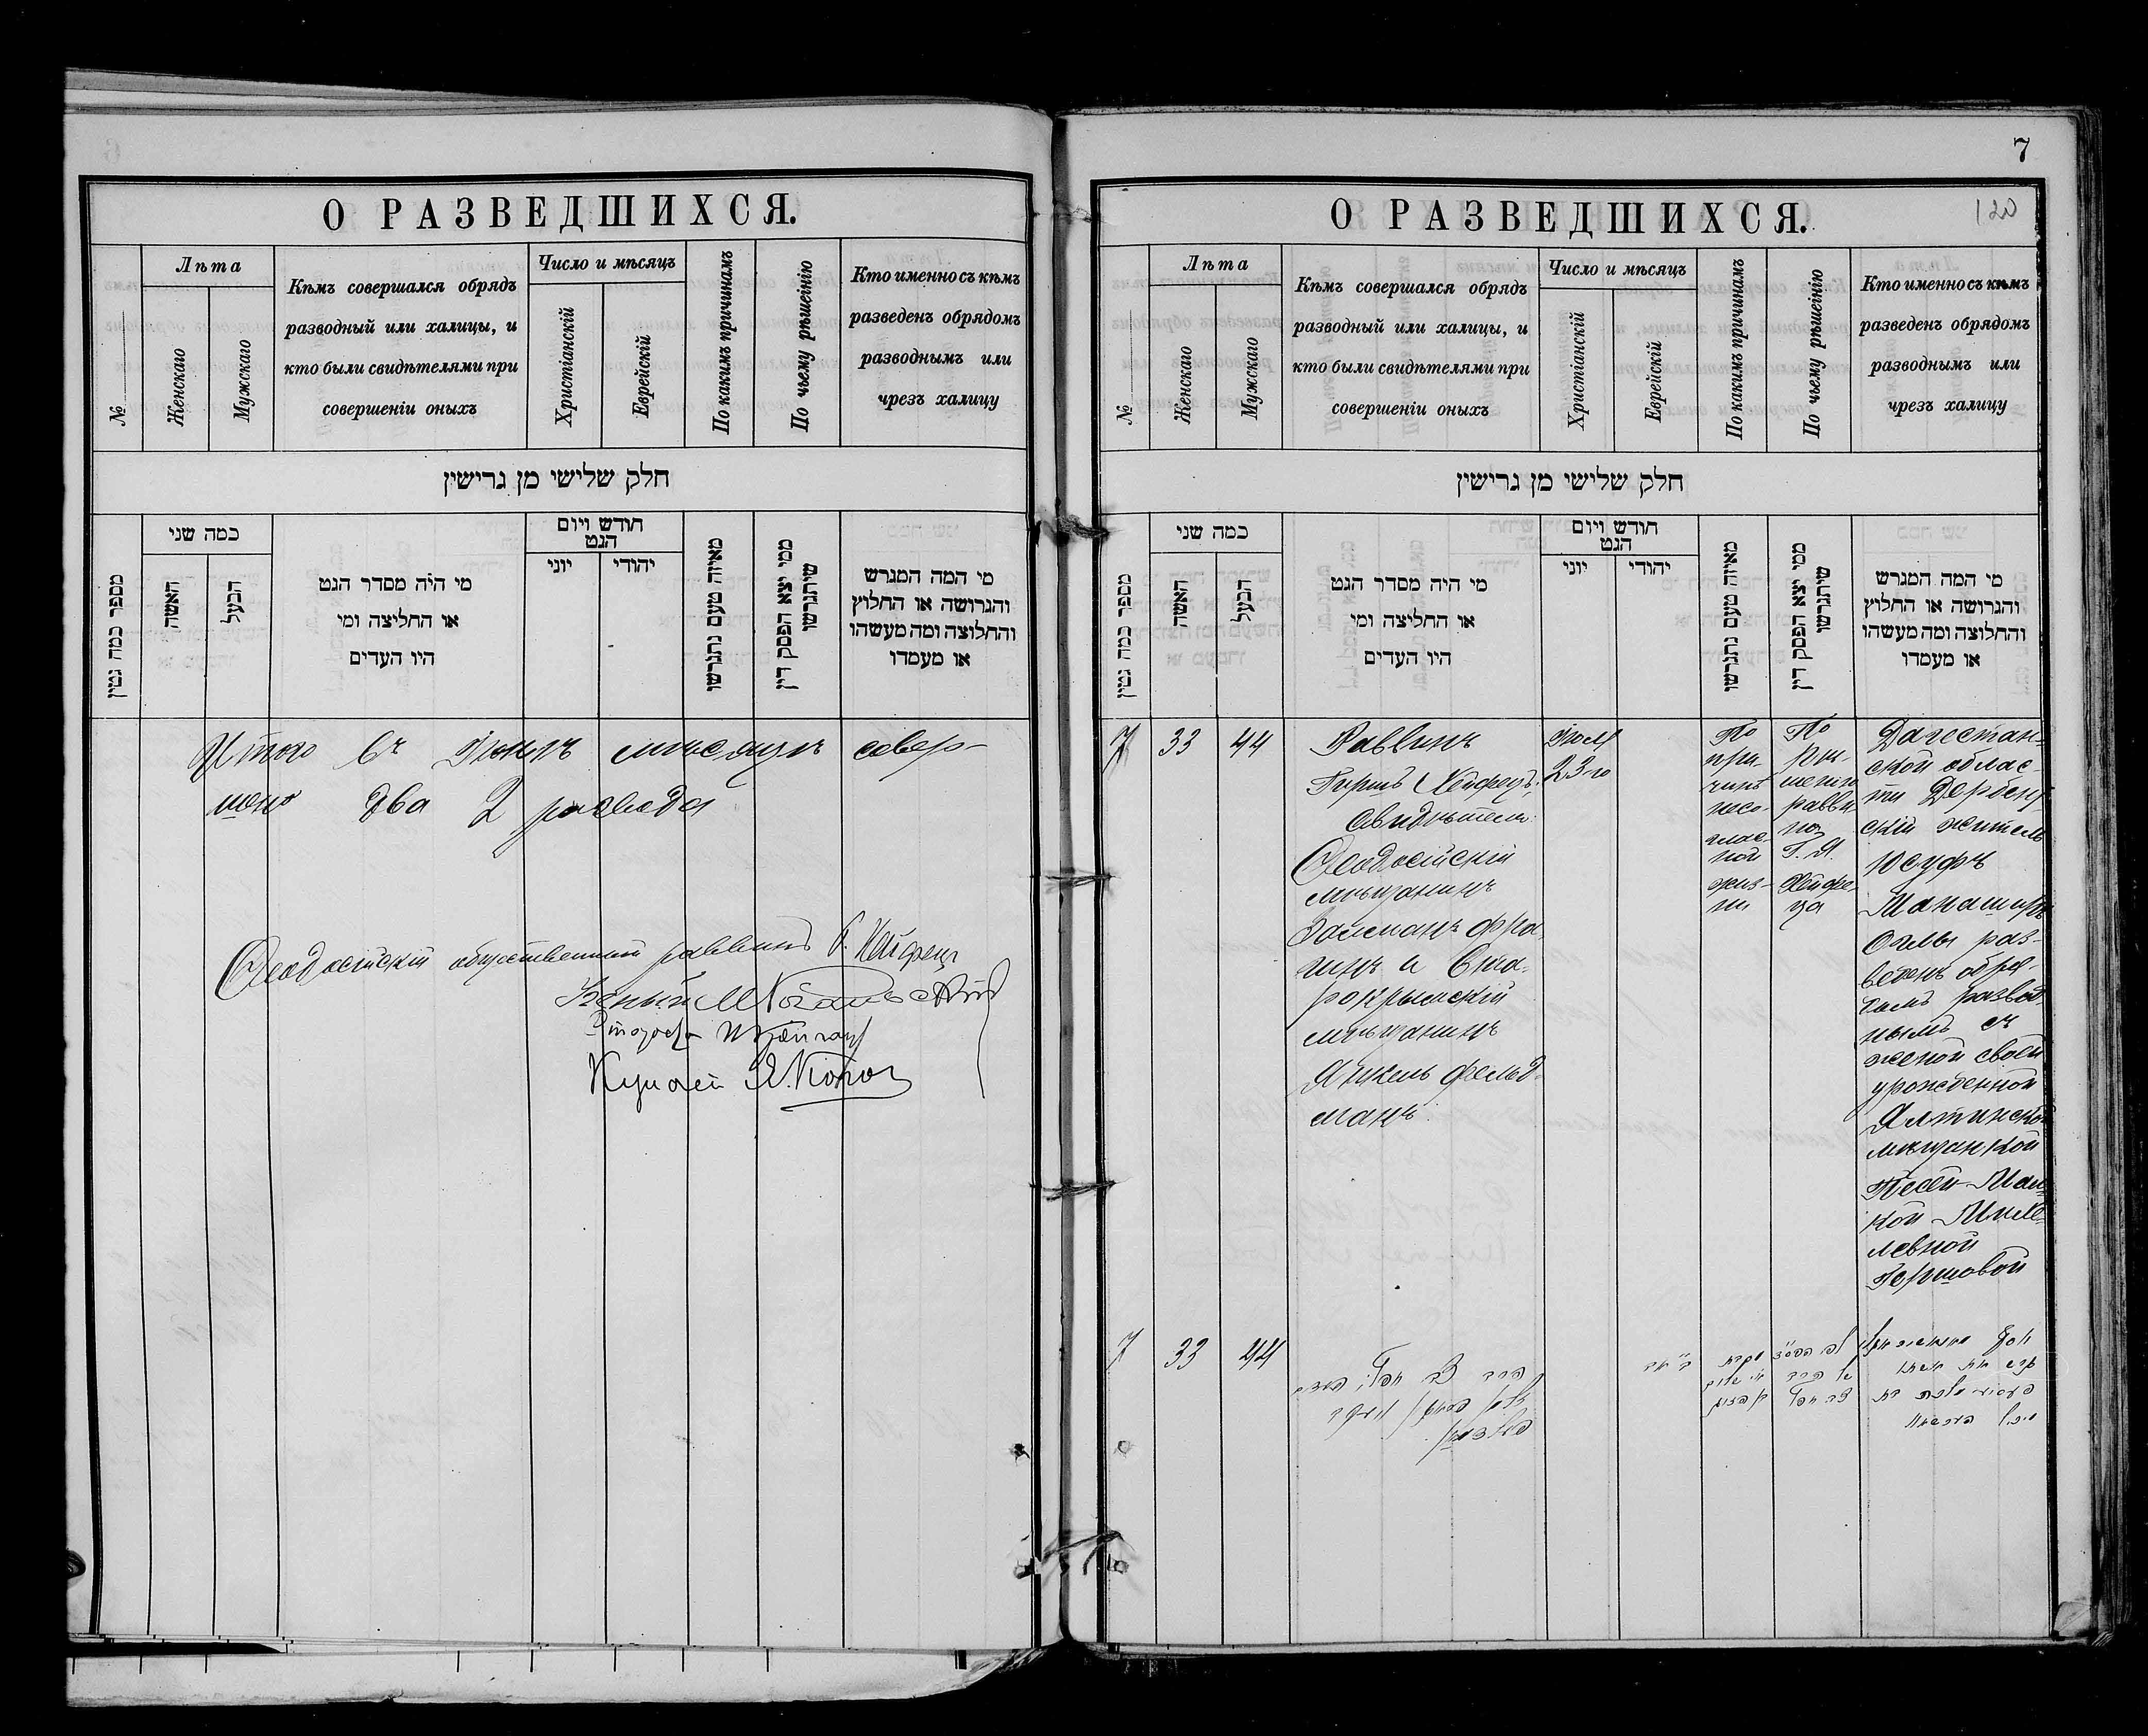 О РАЗВЕДШИХСЯ.
№
Лѣта
Женскаго
Мужскаго
Кѣмъ совершался обрядъ
разводный или халицы, и
кто были свидѣтелями при
совершеніи оныхъ
Число и мѣсяцъ
Христіанскій
Еврейскій
По какимъ причинамъ
По чьему рѣшенію
Кто именно съ кѣмъ
разведенъ обрядомъ
разводнымъ или
чрезъ халицу
חלק שלישי מן גרישין
מספר כמה גטין
כמה שני
האשה
הבעל
מי היה מסדר הגט
או החליצה ומי
היו העדים
חודש ויום
הגט
יוני
יהודי
מאיזה טעם נתגרשו
ממי יצא הפסק דין
שיתגרשו
מי המה המגרש
והגרושה או החלוץ
והחלוצה ומה מעשהו
או מעמדו
Итого въ Іюнѣ мѣсяцѣ совер-
шено два 2 развода
Ѳеодосійскій общественный раввинъ Г. Хейфецъ
Ученый
Староста
Казначей
7
120
О РАЗВЕДШИХСЯ.
№
Лѣта
Женскаго
Мужскаго
Кѣмъ совершался обрядъ
разводный или халицы, и
кто были свидѣтелями при
совершеніи оныхъ
Число и мѣсяцъ
Христіанскій
Еврейскій
По какимъ причинамъ
По чьему рѣшенію
Кто именно съ кѣмъ
разведенъ обрядомъ
разводнымъ или
чрезъ халицу
חלק שלישי מן גרישין
מספר כמה גטין
כמה שני
האשה
הבעל
מי היה מסדר הגט
או החליצה ומי
היו העדים
חודש ויום
הגט
יוני
יהודי
מאיזה טעם נתגרשו
ממי יצא הפסק דין
שיתגרשו
מי המה המגרש
והגרושה או החלוץ
והחלוצה ומה מעשהו
או מעמדו
7
33
44
Раввинъ
Гиршъ Хейфецъ;
Свидѣтели:
Ѳеодосійскій
мѣщанинъ
Залманъ
и Ста-
рокрымскій
мѣщанинъ
Янкель Фельд-
манъ.
Іюля
23-го
По
при-
чинѣ
несо-
глас-
ной
жиз-
ни
По
рѣ-
шенію
равви-
на
Г. Я.
Хейфе-
ца
Дагестан-
ской облас-
ти Дербент-
скій житель
Юсуфъ
Манаширъ
Оглы раз-
веденъ обря-
домъ развод-
нымъ съ
женой своей
урожденной
Ялтинской
мѣщанкой
Песей-Мал-
кой
левной
Гершовой
7
33
44